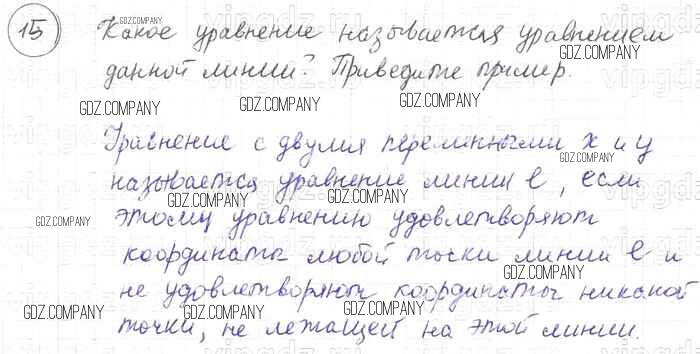 15 Какое уравнение называется уравнением
данной линии? Приведите пример.
Уравнение с двумя переменными x и y
называется уравнение линии l, если
этому уравнению удовлетворяют
координаты любой точки линии l и
не удовлетворяют координаты никакой
точки, не лежащей на этой линии.
GDZ.COMPANY
GDZ.COMPANY
GDZ.COMPANY
GDZ.COMPANY
GDZ.COMPANY
GDZ.COMPANY
GDZ.COMPANY
GDZ.COMPANY
GDZ.COMPANY
GDZ.COMPANY
GDZ.COMPANY
GDZ.COMPANY
GDZ.COMPANY